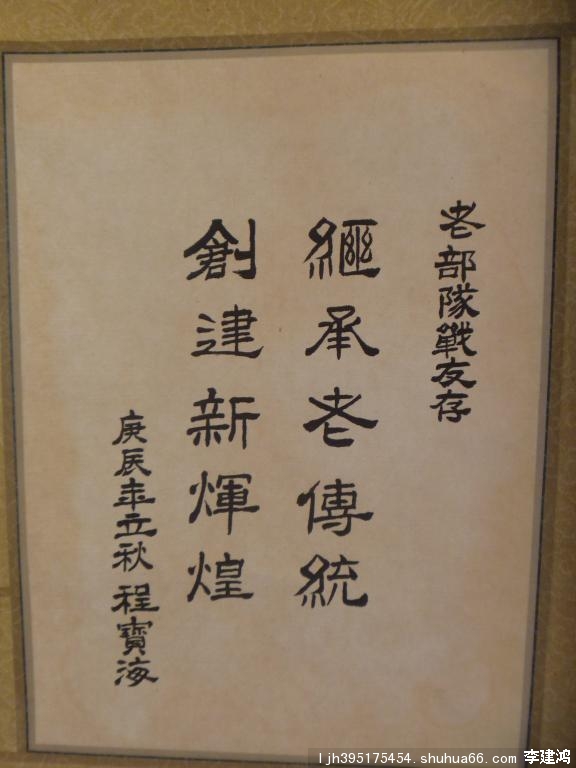 老部隊戰友存
繼承老傳統
創建新輝煌
庚辰年立秋 程寶海
ljh395175454.shuhua66.com 李建鸿